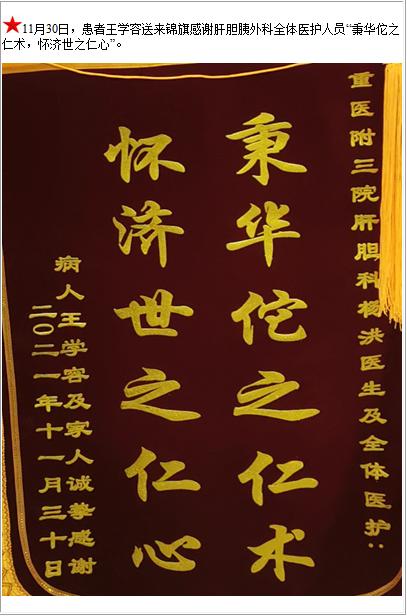 ★11月30日，患者王学容送来锦旗感谢肝胆胰外科全体医护人员“秉华佗之
仁术，怀济世之仁心”。
重医附三院肝胆科杨洪医生及全体医护：
秉华佗之仁术
怀济世之仁心
病人王学容及家人诚挚感谢
二〇二一年十一月三十日